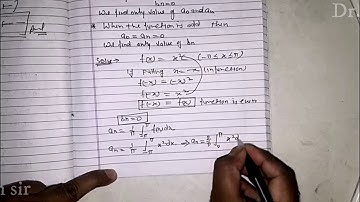 bn=0
We find only value of a0 and an
* When the function is odd then
a0 = an = 0
We find only value of bn
Solve→ f(x) = x² (-π ≤ x ≤ π)
if Putting x=-x (in function)
f(-x) = (-x)²
f(-x) = x²
f(-x) = f(x) function is even
bn=0
an = 1/π ∫-π^π f(x)dx
an = 1/π ∫-π^π x²dx ⇒ an = 2/π ∫0^π x²d
Dn
n sir